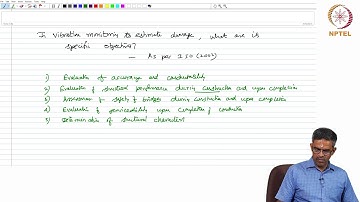 NPTEL
In vibration monitoring to estimate damage, what are is
specific objectives?
— As per ISO (2007)
1) Evaluation of accuracy and constructability
2) Evaluation of structural performance during construction and upon completion
3) Assessment of safety of bridges during construction and upon completion
4) Evaluation of serviceability upon completion of construction
5) Determination of structural characteristics